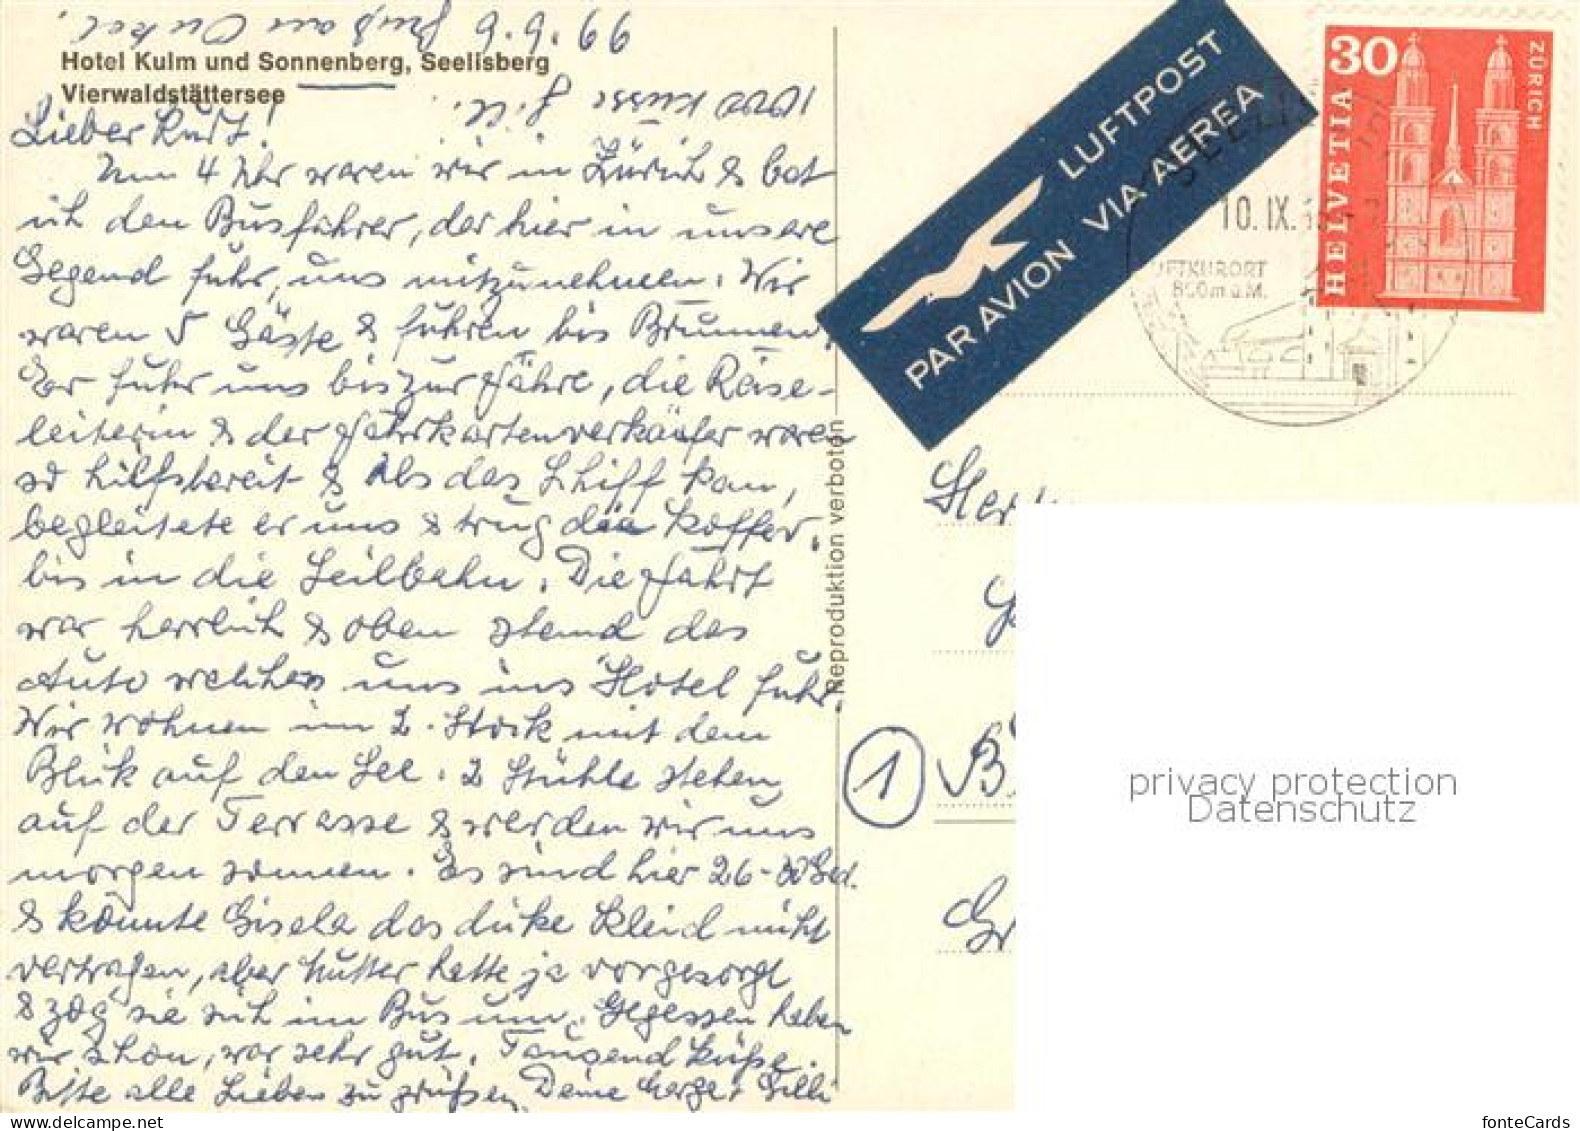 9.9.66 Gruß an Onkel
1000 Küsse
Hotel Kulm und Sonnenberg, Seelisberg
Vierwaldstättersee
Lieber Kurt!
Um 4 Uhr waren wir in Zürich & bot
ich den Busführer, der hier in unsere
Gegend fuhr, uns mitzunehmen. Wir
waren 5 Gäste & fuhren bis Brunnen.
Er fuhr uns bis zur Fähre, die Reise-
leiterin & der Fahrkartenverkäufer waren
so hilfsbereit & als das Schiff kam,
begleitete er uns & trug die Koffer
bis in die Seilbahn. Die Fahrt
war herrlich & oben stand das
Auto welches uns ins Hotel fuhr.
Wir wohnen im 2. Stock mit dem
Blick auf den See. 2 Stühle stehen
auf der Terrasse & werden wir uns
morgen sonnen. Es sind hier 26-30 Grd.
& könnte Gisela das dicke Kleid nicht
vertragen, aber Mutter hatte ja vorgesorgt
& zog sie sich im Bus um. Gegessen haben
wir schon, war sehr gut. Tausend Küsse.
Bitte alle Lieben zu grüßen Deine
Reproduktion verboten
LUFTPOST
PAR AVION VIA AEREA
30
HELVETIA
ZÜRICH
10.IX.
LUFTKURORT
800m ü.M.
Herrn
1
privacy protection
Datenschutz
fonteCards